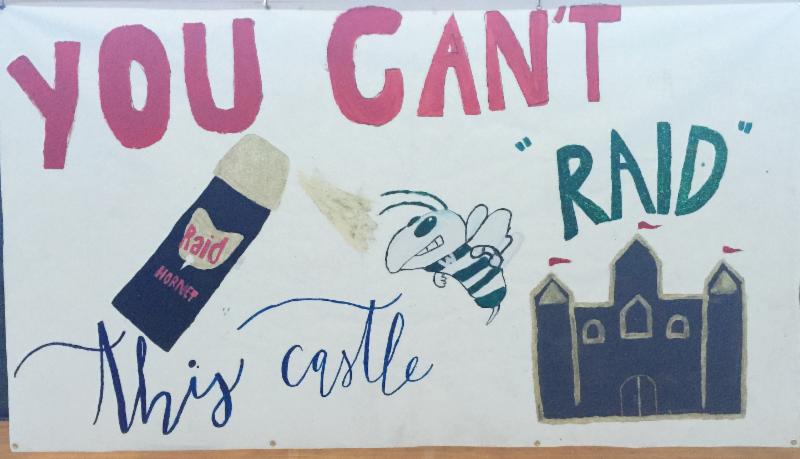 YOU CAN'T
"RAID"
Raid
HORNET
this castle